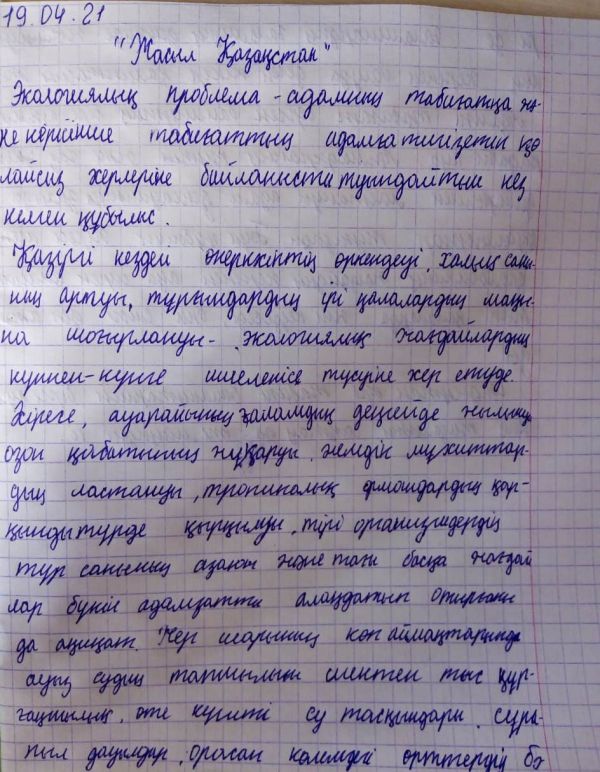 19.04.21
"Жасыл Қазақстан"
Экологиялық проблема - адамның табиғатқа жә-
не керісінше табиғаттың адамға тигізетін қо
лайсыз әсерлеріне байланысты туындайтын кез
келген құбылыс.
Қазіргі кезден өнеркәсіптің өркендеуі, халық саны-
ның артуы, тұрғындардың ірі қалалардың маңы-
на шоғырлануы - экологиялық жағдайлардың
күннен-күнге шиеленісе түсуіне әсер етуде.
Әсіресе, ауарайының ғаламдық деңгейде жылынуы
озон қабатының жұқаруы, әлемдік мұхиттар-
дың ластануы, тропикалық ормандардың қар-
қынды түрде қырқылуы, тірі организмдердің
түр санының азаюы және тағы басқа жағдай
лар бүкіл адамзатты алаңдатып отырғаны
да ақиқат. Жер шарының көп аймақтарында
ауыз судың тапшылығы шектен тыс құр-
ғақшылық, өте күшті су тасқындары, сұра-
пыл дауылдар, орасан көлемдегі өрттердің бо